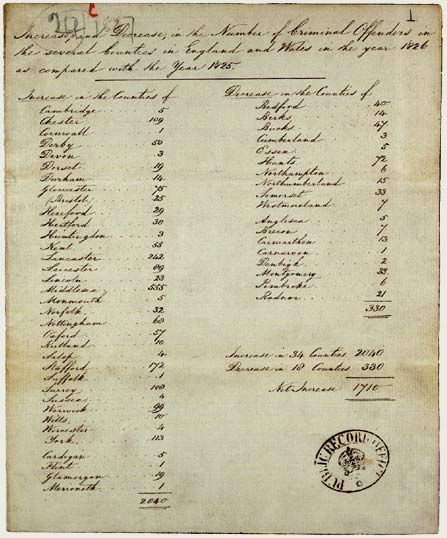 1
Increase, and Decrease, in the Number of Criminal Offenders in
the several Counties in England and Wales in the year 1826
as compared with the Year 1825.
Increase in the Counties of
Cambridge 5
Chester 109
Cornwall 1
Derby 50
Devon 3
Dorset
Durham 14
Gloucester 75
Bristol 25
Hereford 29
Hertford 30
Huntingdon 3
Kent 55
Lancaster 242
Leicester 89
Lincoln 23
Middlesex 555
Monmouth 5
Norfolk 32
Nottingham 60
Oxford 57
Rutland 10
Salop 4
Stafford 172
Suffolk 1
Surrey 100
Sussex 4
Warwick 99
Wilts 10
Worcester 4
York 113
Cardigan 5
Flint 1
Glamorgan 19
Merioneth 1
2040
Decrease in the Counties of
Bedford 40
Berks 14
Bucks 47
Cumberland 3
Essex 5
Hants 72
Northampton 6
Northumberland 15
Somerset 33
Westmoreland 7
Anglesea 5
Brecon 7
Carmarthen 13
Carnarvon 1
Denbigh 2
Montgomery 33
Pembroke 6
Radnor 21
330
Increase in 34 Counties 2040
Decrease in 18 Counties 330
Net Increase 1710
PUBLIC RECORD OFFICE